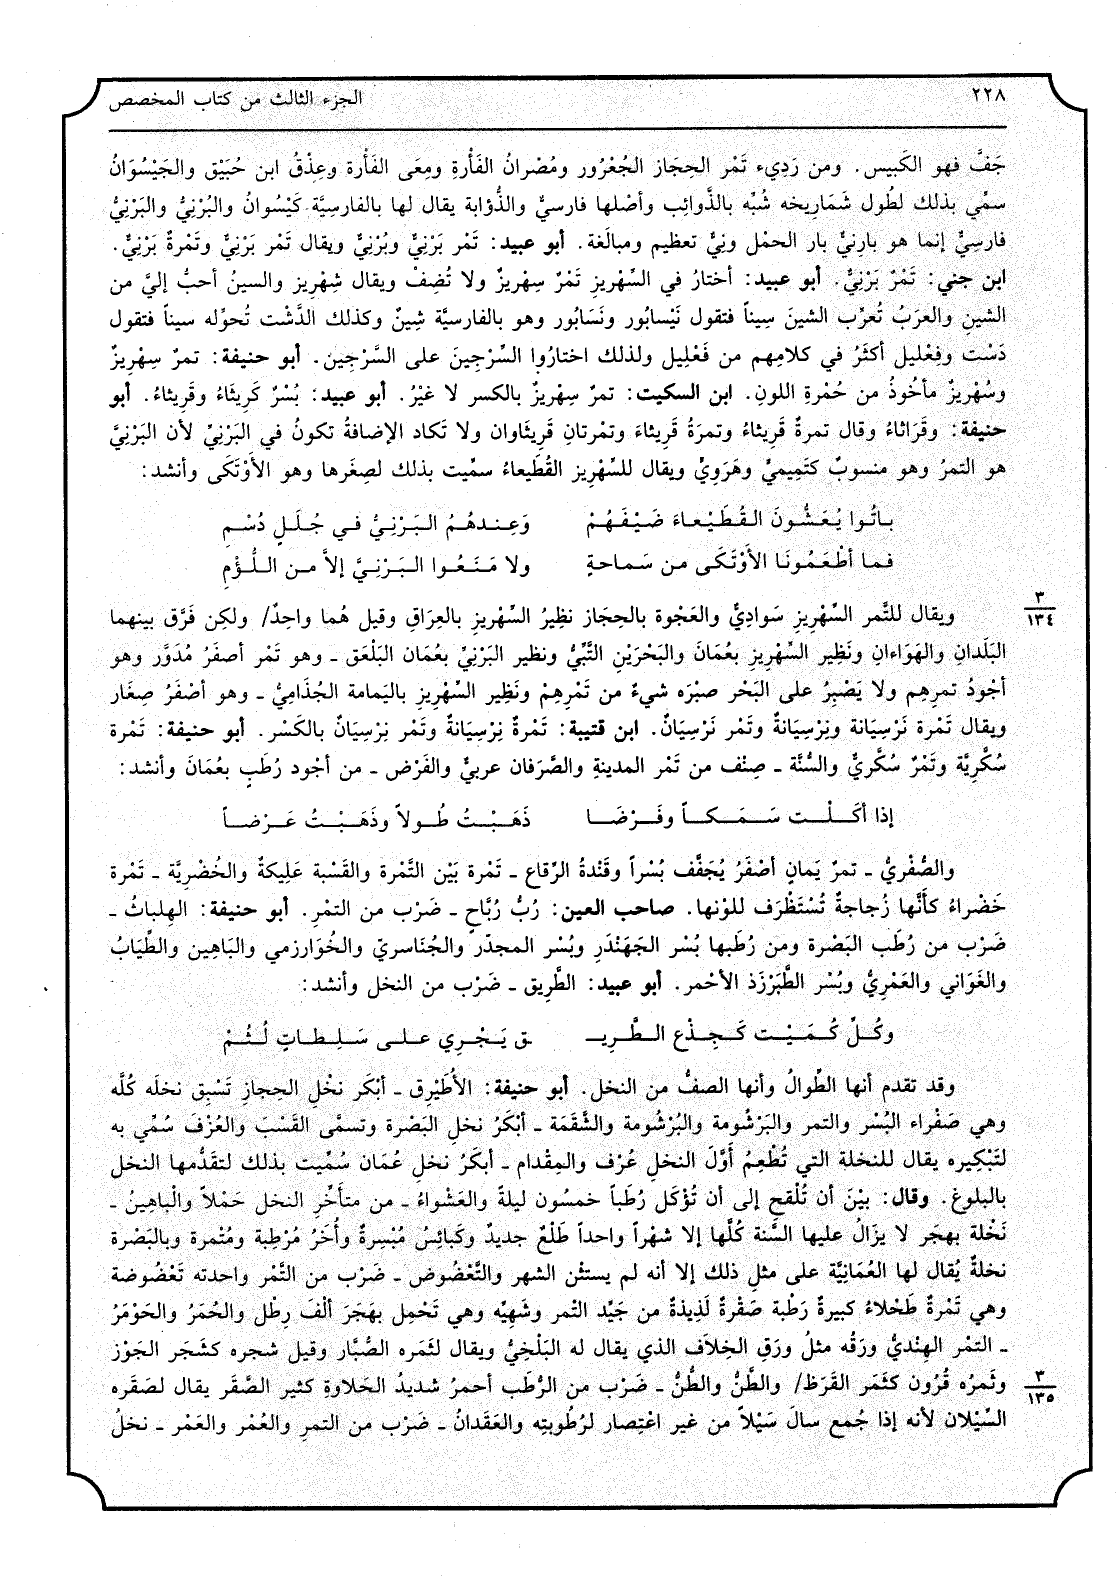 ٢٢٨
الجزء الثالث من كتاب المخصص
جَفَّ فهو الكَبيس. ومن رَدِيء تَمْر الحِجاز الجُعْرُور ومُصْرانُ الفَأْرةِ ومِعَى الفَأْرة وعِذْقُ ابن حُبَيْق والجَيْسُوَانُ
سمِّي بذلك لطُول شَمَاريخه شُبِّه بالذَّوائِب وأصْلها فارسيُّ والذُّؤابة يقال لها بالفارسِيَّة كَيْسُوانُ والبُرْنِيُّ والبَرْنِيُّ
فارسِيٌّ إنما هو بارِنيُّ بار الحمْل ونِيُّ تعظيم ومبالَغة. أبو عبيد: تَمْر بَرْنِيٌّ وبُرْنِيٌّ ويقال تَمْر بَرْنِيٌّ وتَمْرةٌ بَرْنِيٌّ.
ابن جني: تَمْرٌ بَرْنِيٌّ. أبو عبيد: أختارُ في السِّهْرِيزِ تَمْرٌ سِهْرِيزٌ ولا تُضِفْ ويقال شِهْرِيز والسينُ أحبُّ إليَّ من
الشينِ والعرَبُ تُعرِّب الشينَ سِيناً فتقول نَيْسابُور ونَسَابُور وهو بالفارسيَّة شِينٌ وكذلك الدَّشْت تُحوِّله سيناً فتقول
دَسْت وفِعْليل أكثَرُ في كلامِهم من فَعْلِيل ولذلك اختارُوا السِّرْجِينَ على السَّرْجِين. أبو حنيفة: تمرٌ سِهْرِيزٌ
وسُهْرِيزٌ مأخُوذٌ من حُمْرةِ اللونِ. ابن السكيت: تمرٌ سِهْرِيزٌ بالكسر لا غيْرُ. أبو عبيد: بُسْرٌ كَرِيثَاءُ وقَرِيثاءُ. أبو
حنيفة: وقَرَاثاءُ وقال تمرةٌ قَرِيثاءُ وتمرَةُ قَرِيثاءَ وتمْرتانِ قَرِيثَاوان ولا تَكاد الإضافةُ تكونُ في البَرْنِيِّ لأن البَرْنِيَّ
هو التمرُ وهو منسوبٌ كتَمِيمِيٍّ وهَرَوِيٍّ ويقال للسِّهْرِيز القُطَيعاءُ سمِّيت بذلك لصِغَرها وهو الأَوْتَكَى وأنشد:
بـاتُـوا يُـعَـشُّـونَ الـقُـطَيْعاءَ ضَيْفَـهُـمْ وَعِـندهُـمُ الـبَـرْنِيُّ في جُـلَـلٍ دُسْـمِ
فـمـا أطْعَمُونَا الأَوْتَكَى من سَماحةٍ ولا مَـنَـعُـوا الـبَـرْنِيَّ إلاَّ مـن الـلُّـؤْمِ
٣
١٣٤
ويقال للتَّمر السِّهْرِيزِ سَوادِيٌّ والعَجْوة بالحِجَاز نظِيرُ السِّهْرِيز بالعِرَاقِ وقيل هُما واحِدٌ/ ولكِن فَرَّق بينهما
البَلَدانِ والهَوَاءانِ ونَظِير السِّهْرِيزِ بعُمَانَ والبَحْرَيْنِ التَّبِّيُّ ونظير البَرْنِيِّ بعُمَان البَلْعَق ـ وهو تَمْر أصفَرُ مُدَوَّر وهو
أجْودُ تمرِهِم ولا يَصْبِرُ على البَحْر صبْرَه شيءٌ من تَمْرِهِمْ ونَظِير السِّهْرِيزِ باليَمامة الجُذَامِيُّ ـ وهو أصْفَرُ صِغَار
ويقال تَمْرة نَرْسِيَانة ونِرْسِيَانةٌ وتَمْر نَرْسِيَانٌ. ابن قتيبة: تَمْرةٌ نِرْسِيَانةٌ وتَمْر نِرْسِيَانٌ بالكَسْر. أبو حنيفة: تَمْرة
سُكَّرِيَّة وتَمْرٌ سُكَّرِيٌّ والسُّنَّة ـ صِنْف من تَمْر المدينةِ والصَّرَفان عربيٌّ والفَرْض ـ من أجْود رُطَبٍ بعُمَانَ وأنشد:
إذا أكَـلْـت سَـمَـكـاً وفَـرْضَـا ذَهَـبْـتُ طُـولاً وذَهَـبْـتُ عَـرْضـاً
والصُّفْرِيُّ ـ تمرٌ يَمانٍ أصْفَرُ يُجَفَّف بُسْراً وقَنْدةُ الرِّقاع ـ تَمْرة بَيْن التَّمْرة والقَسْبة عَلِيكةٌ والخُضْرِيَّة ـ تَمْرة
خَضْراءُ كأَنَّها زُجاجةٌ تُسْتَظْرَف للوْنها. صاحب العين: رُبُّ رُبَّاحٍ ـ ضَرْب من التمْرِ. أبو حنيفة: الهِلْباثُ ـ
ضَرْب من رُطَب البَصْرة ومن رُطَبها بُسْر الجَهَنْدَرِ وبُسْر المجدّر والجُنَاسريّ والخُوَارزمي والبَاهِين والطِّيَابُ
والغَوَاني والعَمْرِيُّ وبُسْر الطَّبَرْزَذ الأحْمر. أبو عبيد: الطَّرِيق ـ ضَرْب من النخل وأنشد:
وكُـلِّ كُـمَـيْـت كَـجِـذْع الـطَّـرِيـ ـق يَـجْرِي عـلـى سَـلِـطـاتٍ لُـثُـمْ
وقد تقدم أنها الطِّوالُ وأنها الصفُّ من النخل. أبو حنيفة: الأُطَيْرِق ـ أبْكَر نخْلِ الحجازِ تَسْبِق نخلَه كُلَّه
وهي صَفْراء البُسْر والتمر والبَرْشُومة والبُرْشُومة والشَّقَمَة ـ أبْكَرُ نخلِ البَصْرة وتسمَّى القَسْبَ والعُرْفَ سُمِّي به
لتَبْكِيره يقال للنخلة التي تُطْعِمُ أَوَّلَ النخلِ عُرْف والمِقْدام ـ أبكَرُ نخلِ عُمَان سُمِّيت بذلك لتقدُّمها النخل
بالبلوغ. وقال: بيْنَ أن تُلْقح إلى أن تُؤْكَل رُطَباً خمسُون ليلةً والعَشْواءُ ـ من متأخِّرِ النخل حَمْلاً والْباهِينُ ـ
نَخْلة بهجَر لا يزَالُ عليها السَّنةَ كُلَّها إلا شهْراً واحداً طَلْعٌ جديدٌ وكَبائِسُ مُبْسِرةٌ وأُخَرُ مُرْطِبة ومُتْمرة وبالبَصْرة
نخلةٌ يُقال لها العُمَانِيَّة على مثلِ ذلك إلا أنه لم يستثْنِ الشهر والتَّعْضُوض ـ ضَرْب من التَّمْر واحدته تَعْضُوضة
وهي تَمْرةٌ طَحْلاءُ كبيرةٌ رَطْبة صَقْرةٌ لَذِيذةٌ من جَيِّد التْمر وشَهيِّه وهي تَحْمِل بهَجَرَ ألْفَ رِطْل والحُمَرُ والحَوْمَرُ
ـ التمْر الهِنْديُّ ورَقُه مثلُ ورَقِ الخِلَاَف الذي يقال له البَلْخِيُّ ويقال لثَمره الصُّبَّار وقيل شجره كشَجَر الجَوْز
٣
١٣٥
وثَمرُه قُرُون كثَمَر القَرَظ/ والطَّنُّ والطُّنُّ ـ ضَرْب من الرُّطَب أحمرُ شديدُ الحَلاوةِ كثير الصَّقَر يقال لصَقَره
السَّيْلان لأنه إذا جُمع سالَ سَيْلاً من غير اعْتِصار لرُطُوبتِه والعَقَدانُ ـ ضَرْب من التمرِ والعُمْر والعَمْر ـ نخلُ